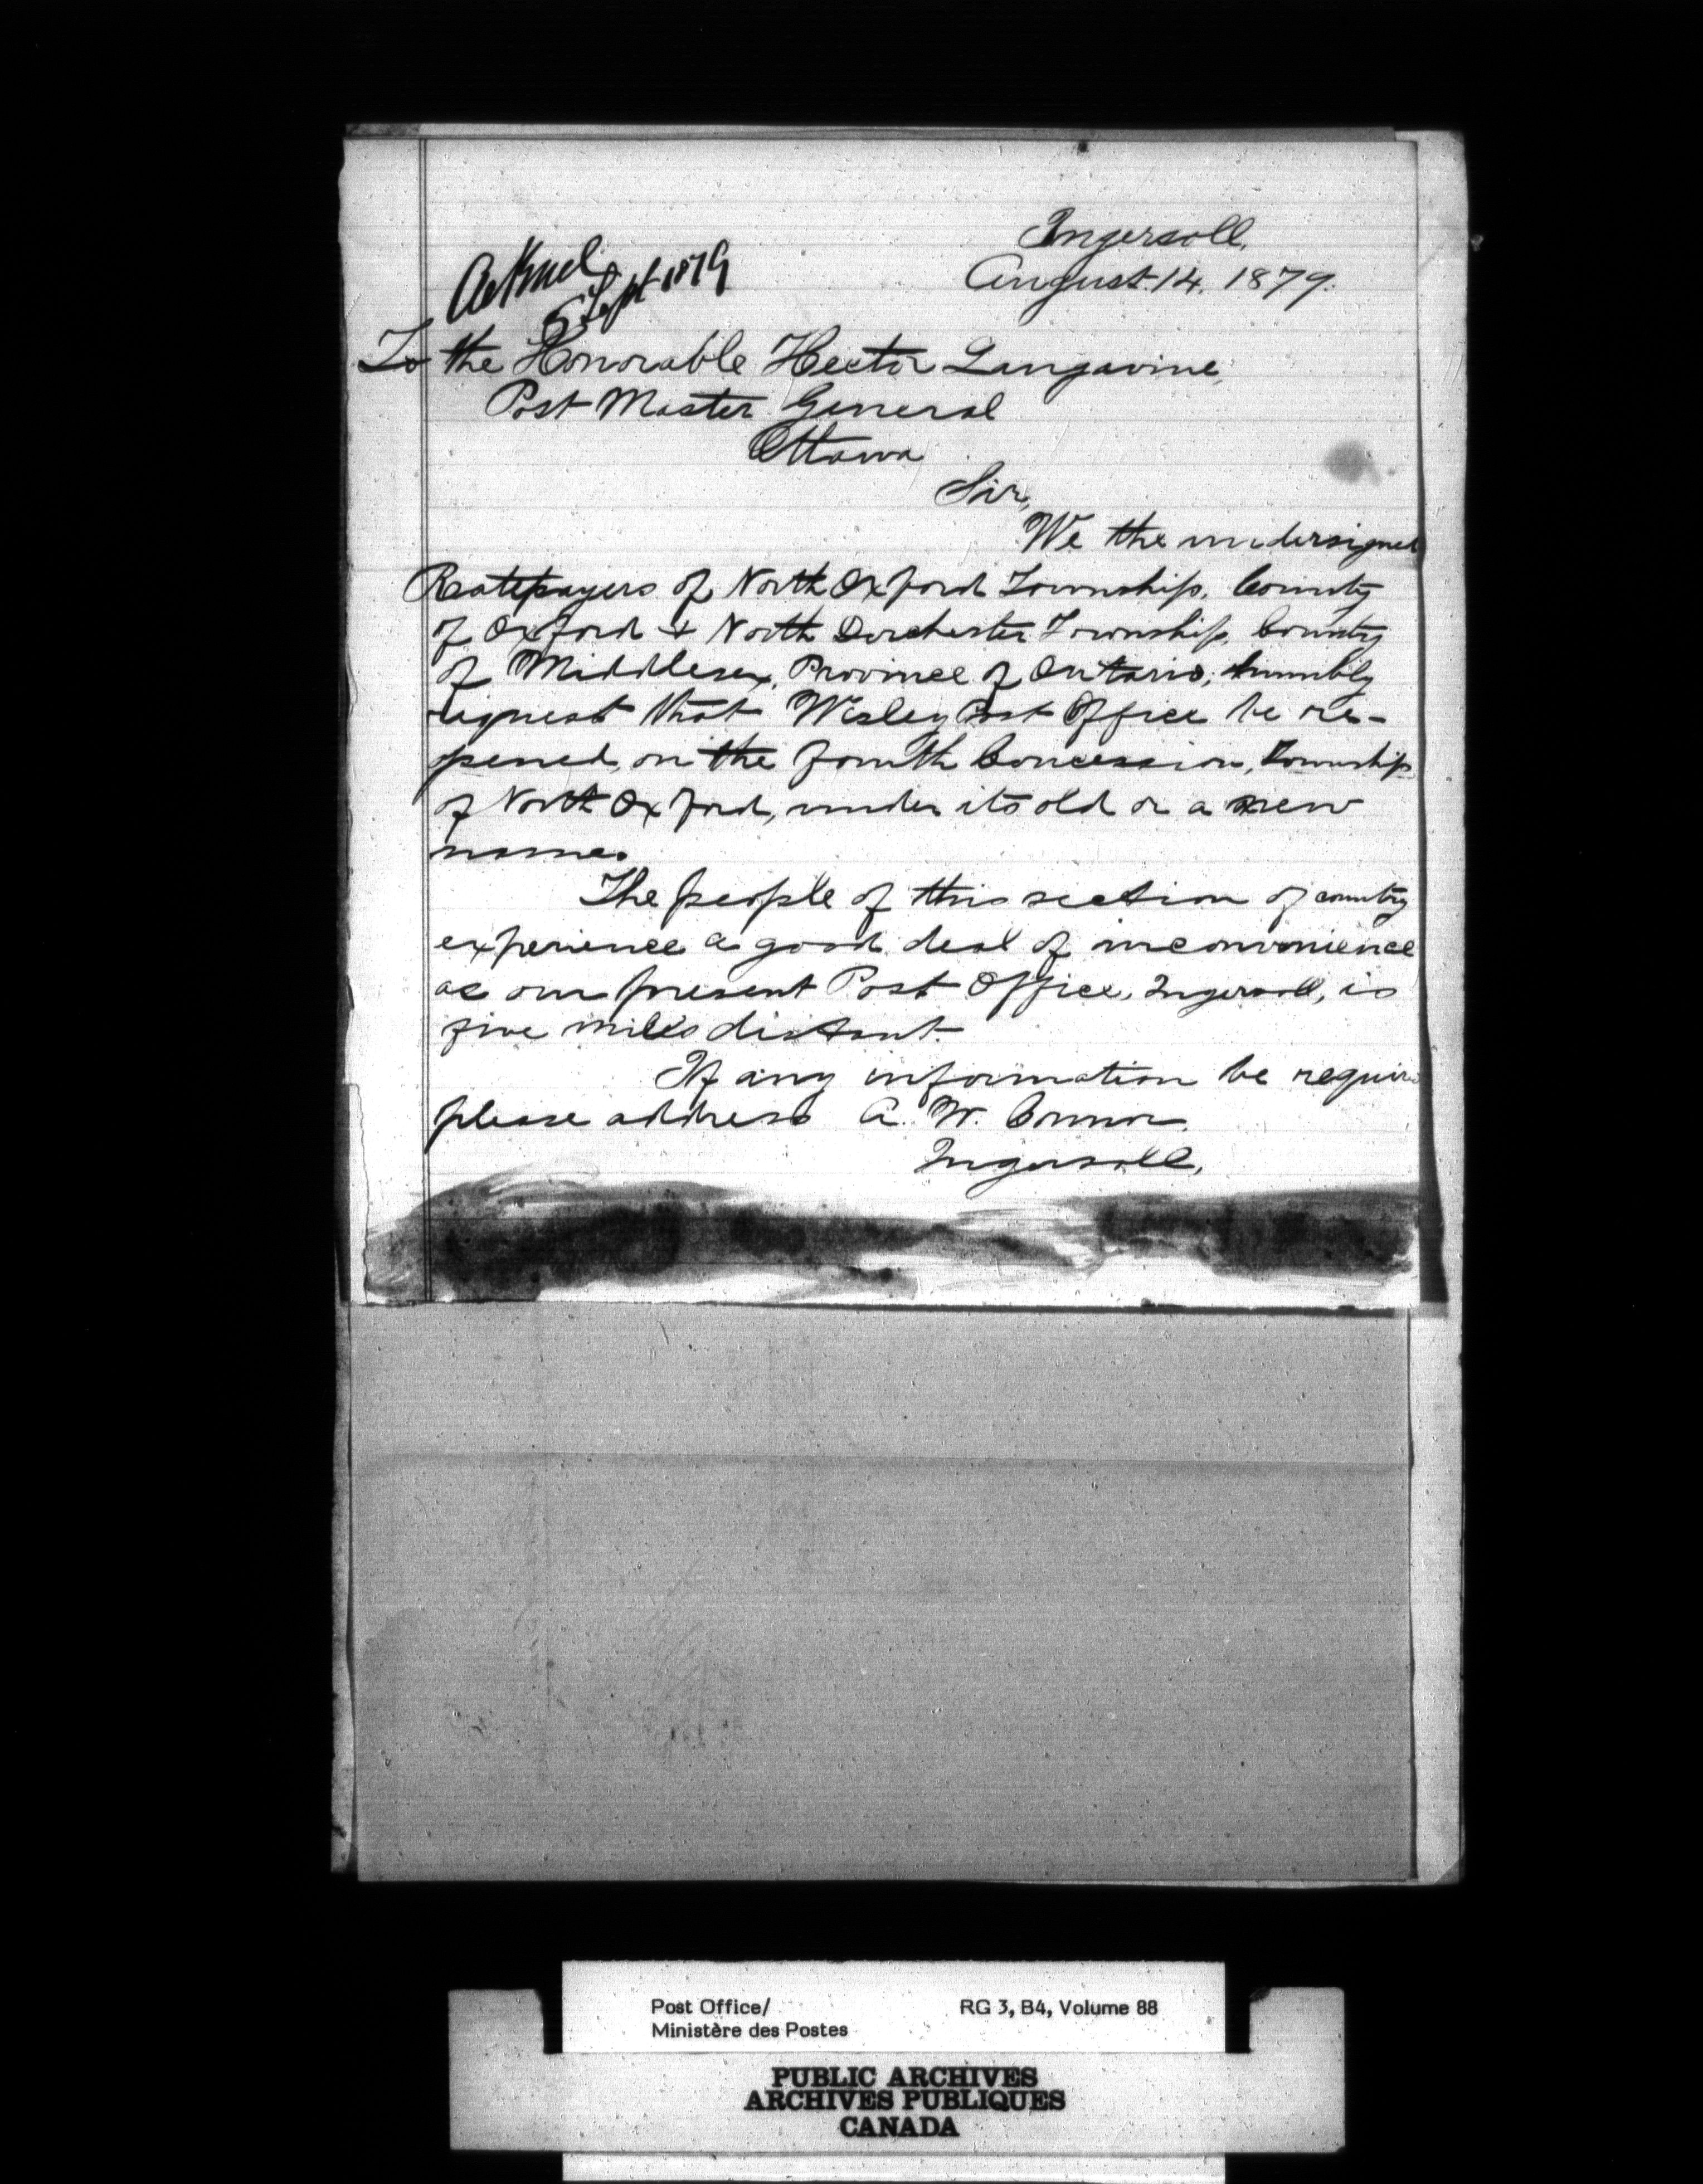 Ingersoll,
August 14, 1879.
Acknd
5 Sept 1879
To the Honorable Hector Langavine,
Post Master General
Ottawa
Sir,
We the undersigned
Ratepayers of North Oxford Township, County
of Oxford & North Dorchester Township, County
of Middlesex, Province of Ontario, humbly
request that Wesley Post Office be re-
opened, on the fourth Concession, Township
of North Oxford, under its old or a new
name.
The people of this section of country
experience a good deal of inconvenience
as our present Post Office, Ingersoll, is
five miles distant.
If any information be required
please address A. W. Connor.
Ingersoll,
Post Office/
Ministère des Postes
RG 3, B4, Volume 88
PUBLIC ARCHIVES
ARCHIVES PUBLIQUES
CANADA